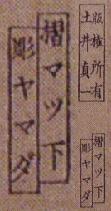 版権所有
土井貞一
摺マツ下
彫ヤマダ
摺マツ下
彫ヤマダ